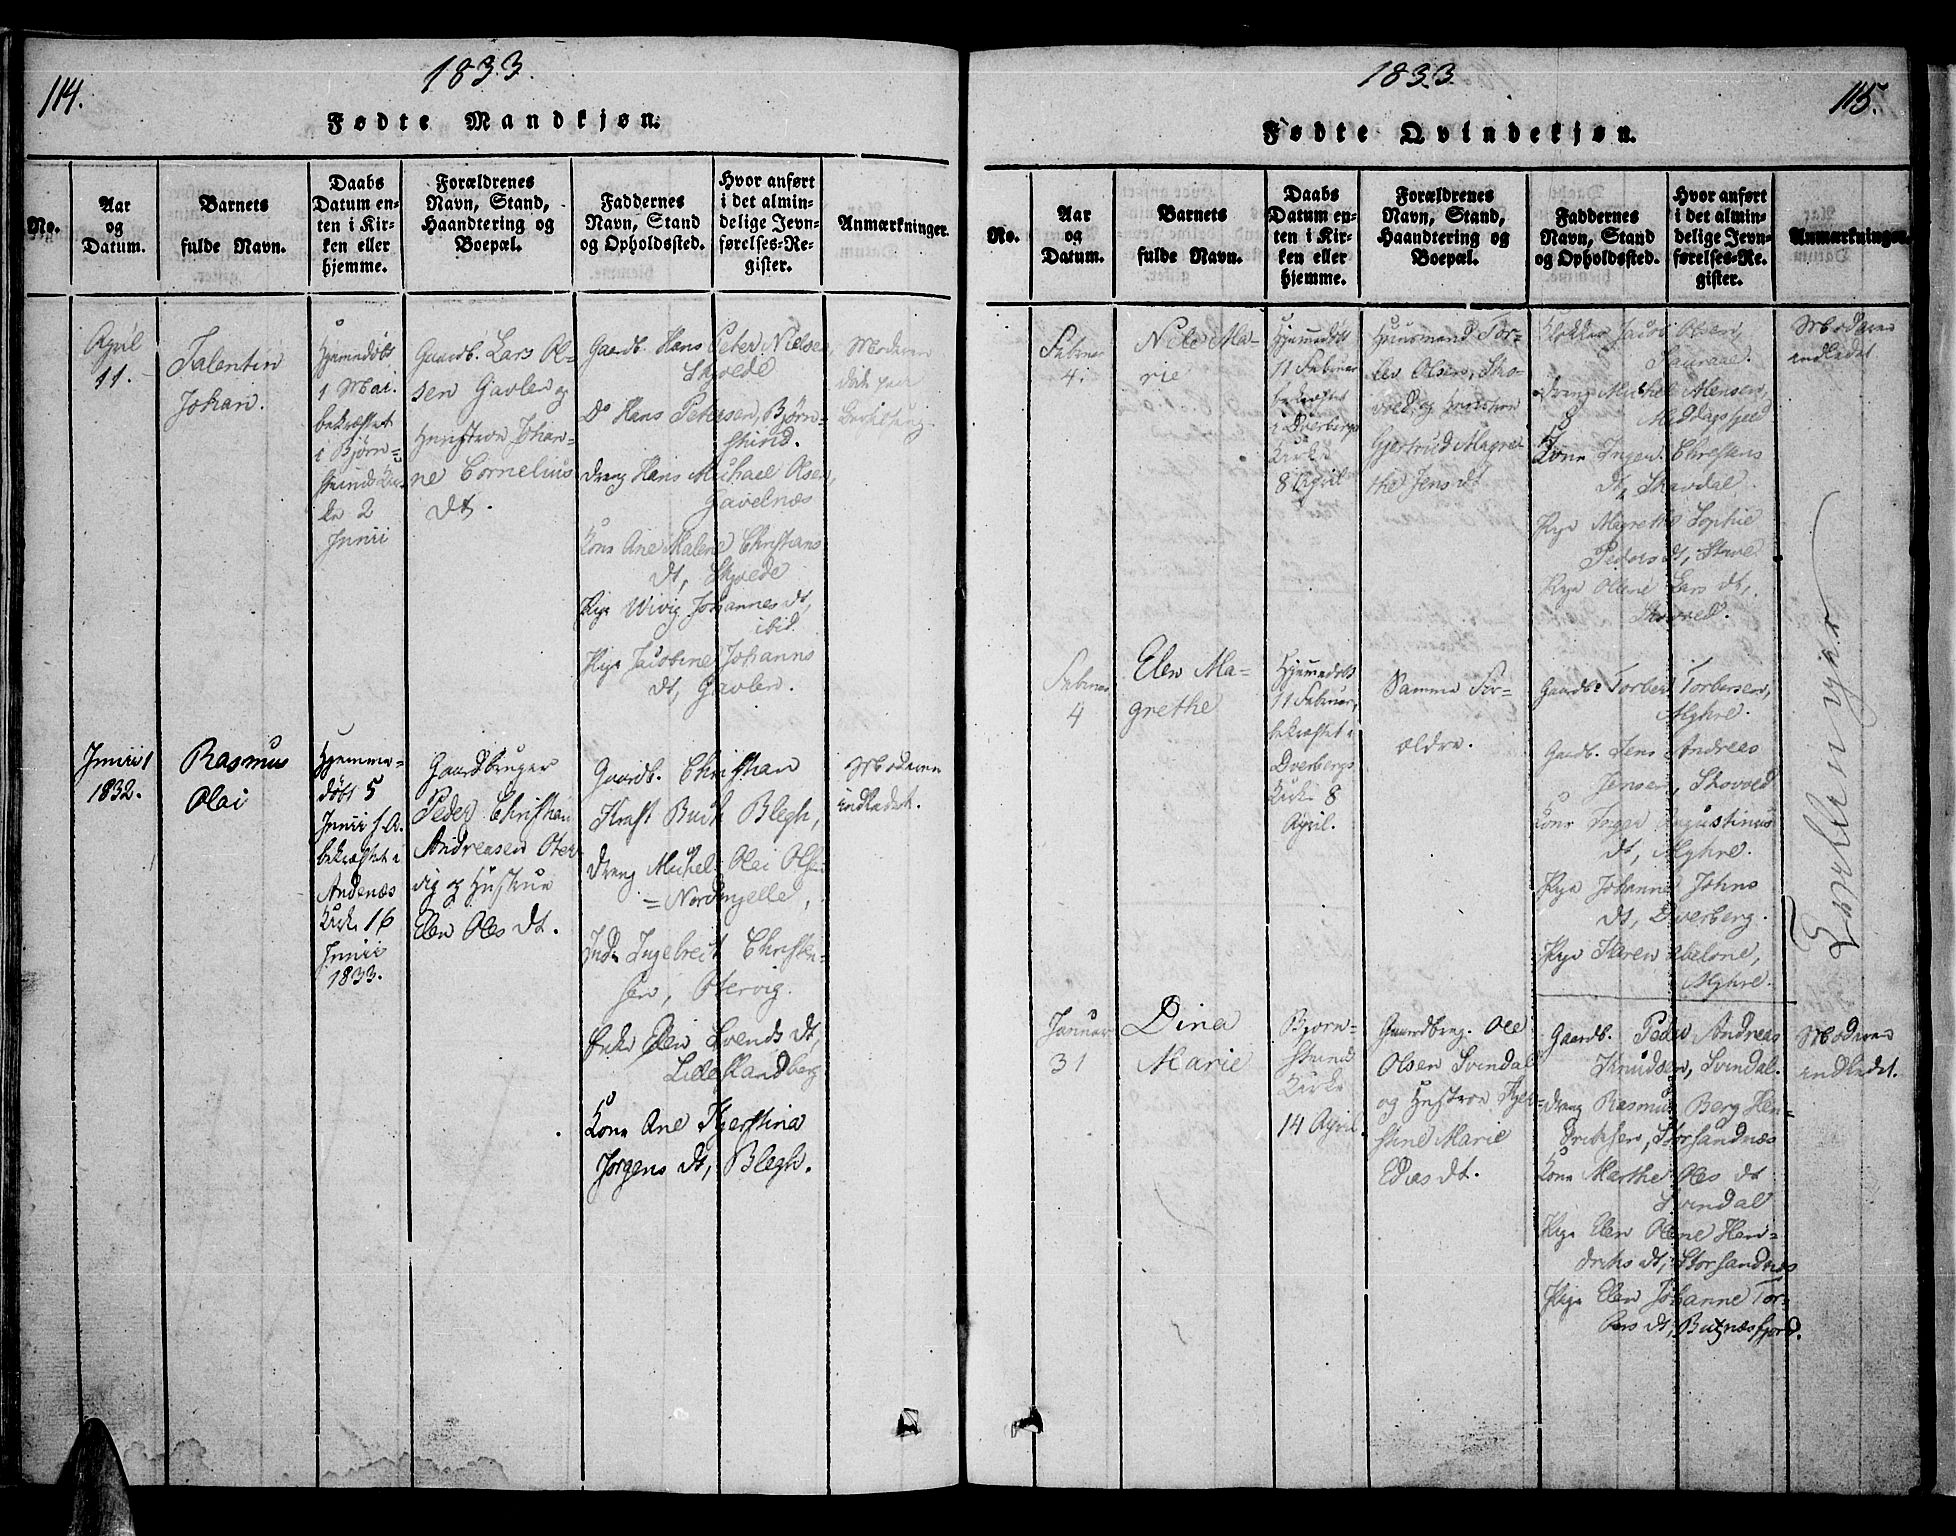 114.
1833.
Fødte Mandkjøn.
No.
Aar
og
Datum.
Barnets
fulde Navn.
Daabs
Datum en-
ten i Kir-
ken eller
hjemme.
Forældrenes
Navn, Stand,
Haandtering og
Boepæl.
Faddernes
Navn, Stand
og Opholdssted.
Hvor anført
i det almin-
delige Jevn-
førelses-Re-
gister.
Anmærkninger.
April
11.
Talentin
Johan.
Hjemmedøbt
1 Mai.
bekræftet
i Bjørn-
skinds Kir-
ke 2
Junii
Gaardb. Lars Ol-
sen Gavlen og
Hustroe Johan-
ne Cornelius
dt.
Gaardb. Hans Peter Nielsen,
Skjvede
Do Hans Petersen, Bjørn-
skind.
Dreng Hans Michael Olsen,
Gavelnæs
Kone Ane Malene Christians
dt, Skjvede
Pige Wivig Johannes dt,
ibid.
Pige Jacobine Johanns
dt, Gavlen.
Moderen
død paa
Barselseng.
Junii 1
1832.
Rasmus
Olai
Hjemme-
døbt 5
Junii f. A.
bekræftet i
Andenæs
Kirke 16
Junii
1833.
Gaardbruger
Peder Christian
Andreasen Oter-
vig og Hustrue
Elen Oles dt.
Gaardb. Christian
Kraft Buch Blegh,
Dreng Michel Olai Olsen
Nordmjelle,
Ind. Ingebreit Christen-
sen, Otervig.
Enke Elen Svends dt,
Lille Sandberg
Kone Ane Kjerstina
Jørgens dt, Blegh.
Moderen
indledet.
1833.
115.
Fødte Qvindekjøn.
No.
Aar
og
Datum.
Barnets
fulde Navn.
Daabs
Datum en-
ten i Kir-
ken eller
hjemme.
Forældrenes
Navn, Stand,
Haandtering og
Boepæl.
Faddernes
Navn, Stand
og Opholdssted.
Hvor anført
i det almin-
delige Jevn-
førelses-Re-
gister.
Anmærkninger.
Februar
4.
Nele Ma-
rie
Hjemmedøbt
11 Februar
bekræftet
i Dverbergs
Kirke
8 April
Huusmand Tor-
lev Olsen, Sko-
vold, og Hustroe
Gjertrud Magre-
the Jens dt
Klokker Jacob Olsen,
Sauraae.
Dreng Michel Mensen,
Middagsfjeld
Kone Inger Christens
dt, Skavdal.
Pige Magrethe Sophie
Peders dt, Stave
Pige Olene Lars dt,
Skoved.
Moderen
indledet
Februar
4
Elen Ma-
grethe
Hjemmedøbt
11 Februar,
bekræftet i
Dverbergs
Kirke 8
April.
Samme For-
ældre.
Gaardb. Torber Torbersen,
Myhre.
Gaardb. Jens Andreas
Jensen, Skoved
Kone Inger Augustinus
dt, Myhre.
Pige Johanna Johns
dt, Dverberg.
Pige Karen Abelone,
Myhre.
Tvillinger
Januar
31
Dina
Marie
Bjørn-
skind
Kirke
14 April.
Gaardbrug. Ole
Olsen Svindal
og Hustroe Kjer-
stine Marie
Edias dt.
Gaardb. Peder Andreas
Knudsen, Svindal.
Dreng Rasmus Berg Hen-
driksen, Storsandnæs
Kone Marthe Oles dt
Svindal
Pige Elen Olene Hen-
driks dt, Storsandnæs
Pige Elen Johanne Tor-
bers dt, Butnæsfjord.
Moderen
indledet.